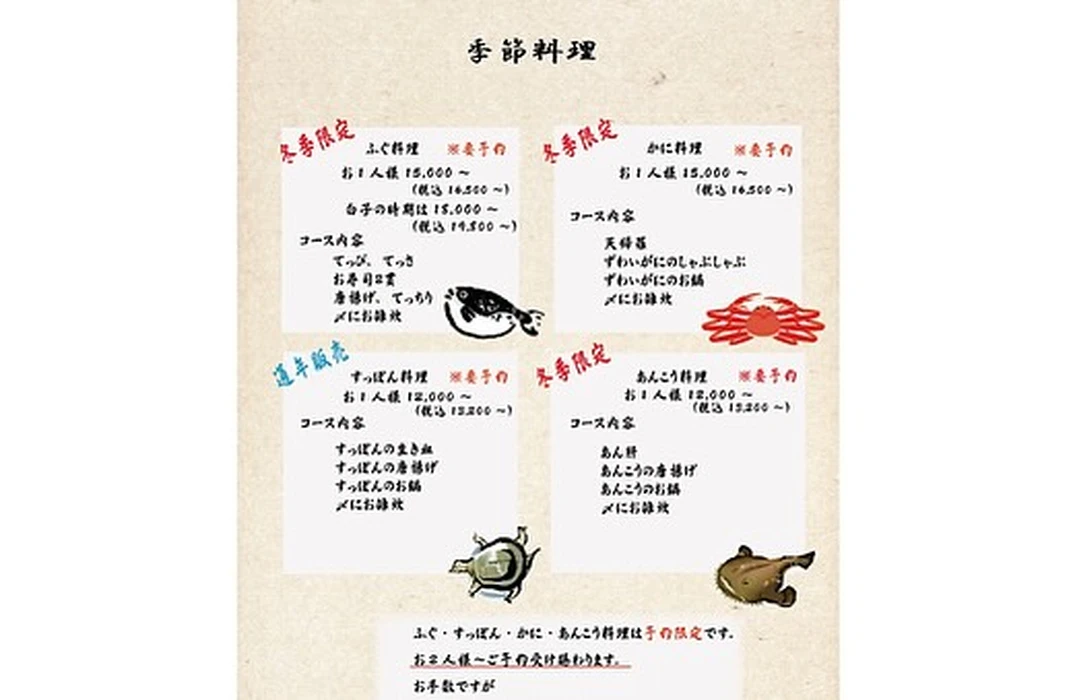 季節料理
冬季限定
ふぐ料理 ※要予約
お1人様 15,000 〜
(税込 16,500 〜)
白子の時期は 18,000 〜
(税込 19,800 〜)
コース内容
てっぴ、てっさ
お寿司2貫
唐揚げ、てっちり
〆にお雑炊
冬季限定
かに料理 ※要予約
お1人様 15,000 〜
(税込 16,500 〜)
コース内容
天婦羅
ずわいがにのしゃぶしゃぶ
ずわいがにのお鍋
〆にお雑炊
通年販売
すっぽん料理 ※要予約
お1人様 12,000 〜
(税込 13,200 〜)
コース内容
すっぽんの生き血
すっぽんの唐揚げ
すっぽんのお鍋
〆にお雑炊
冬季限定
あんこう料理 ※要予約
お1人様 12,000 〜
(税込 13,200 〜)
コース内容
あん肝
あんこうの唐揚げ
あんこうのお鍋
〆にお雑炊
ふぐ・すっぽん・かに・あんこう料理は予約限定です。
お2人様〜ご予約受け賜わります。
お手数ですが